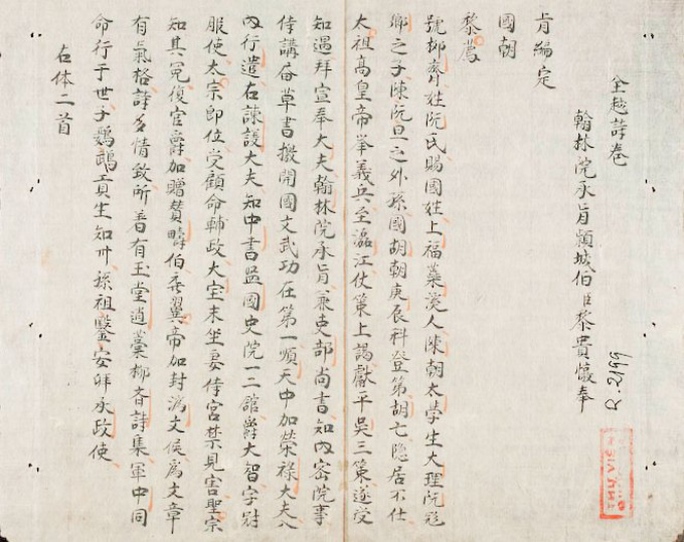 全越詩卷
翰林院承旨頴城伯臣黎貴惇奉
R.2199
旨編定
國朝
黎廌
號抑齋姓阮氏賜國姓上福蘂溪人陳朝太学生大理阮飛
卿之子陳阮旦之外孫國胡朝庚辰科登第胡亡隐居不仕
太祖高皇帝举義兵至瀘江仗策上謁獻平吴三策遂受
知遇拜宣奉大夫翰林院承旨兼吏部尚書知內密院事
侍講草書撥開國文武功在第一順天中加榮祿大夫入
內行遣右諫議大夫知中書監國史院一二舘爵大智字尉
服使太宗即位受顧命輔政大宝末坐妾侍宮禁見害聖宗
知其冤復官爵加贈賛疇伯翼帝加封濟文侯為文章
有氣格詩多情致所著有玉堂遺藁抑斉詩集軍中同
命行于世子鸚鵡生知州孫祖鑒安邦承政使
右体二首